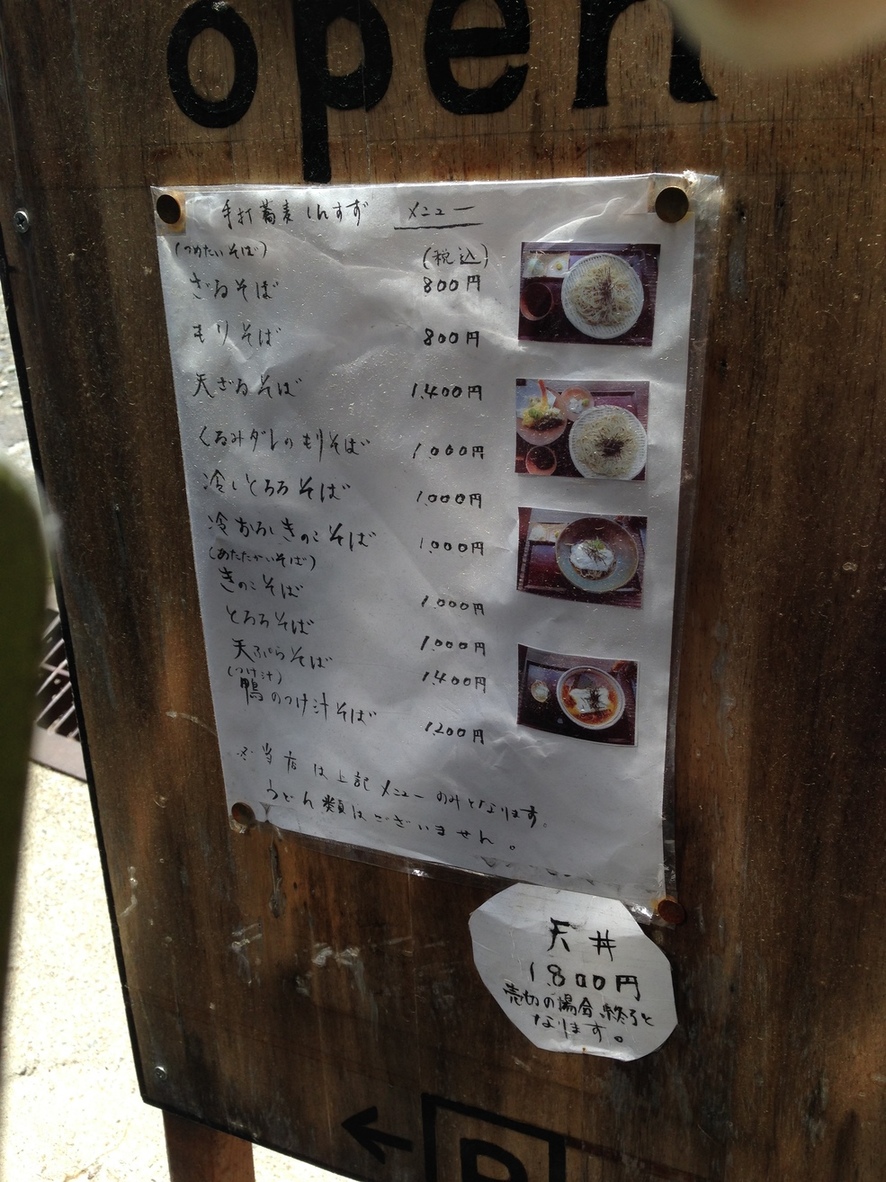 open
手打蕎麦 しんすず メニュー
(つめたいそば) (税込)
ざるそば 800円
もりそば 800円
天ざるそば 1,400円
くるみダレのもりそば 1,000円
冷しとろろそば 1,000円
冷おろしきのこそば 1,000円
(あたたかいそば)
きのこそば 1,000円
とろろそば 1,000円
天ぷらそば 1,400円
(つけ汁)
鴨のつけ汁そば 1,200円
※当店は上記メニューのみとなります。
うどん類はございません。
天丼
1,800円
売切の場合、終了と
なります。
← P